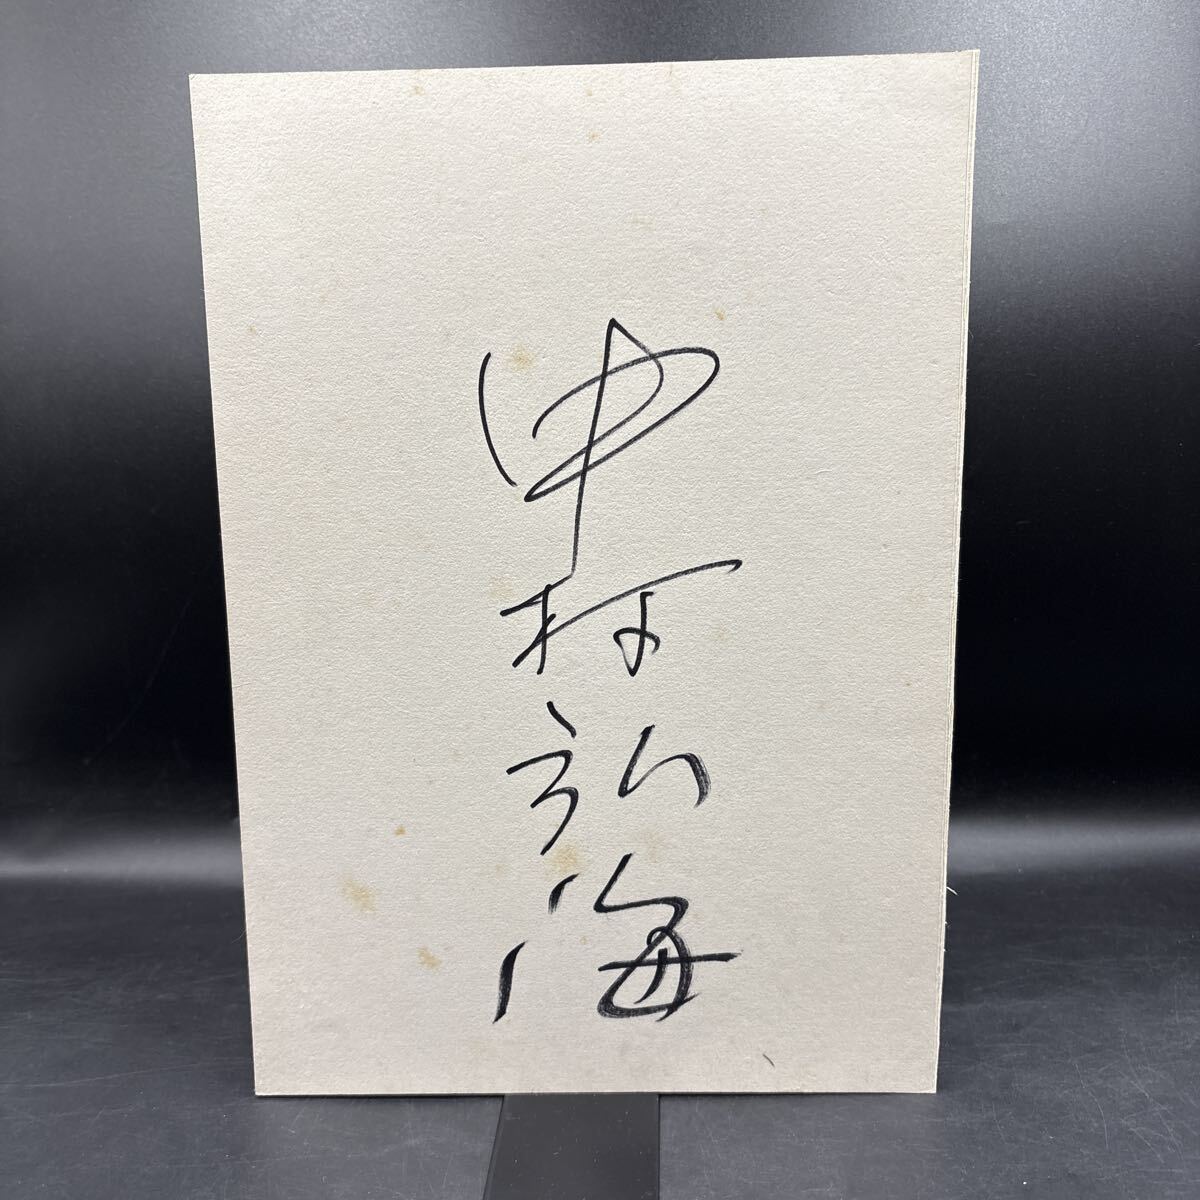 中村弘海